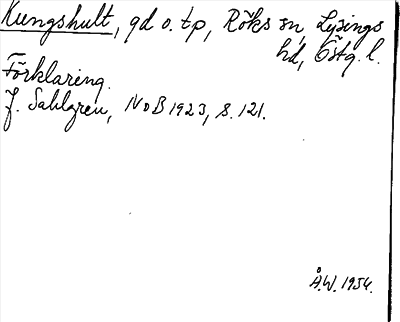 Kungshult, gd o. tp, Röks sn, Lysings
hd, Östg. l.
Förklaring.
J. Sahlgren, NoB 1923, s. 121.
Å.W. 1954.